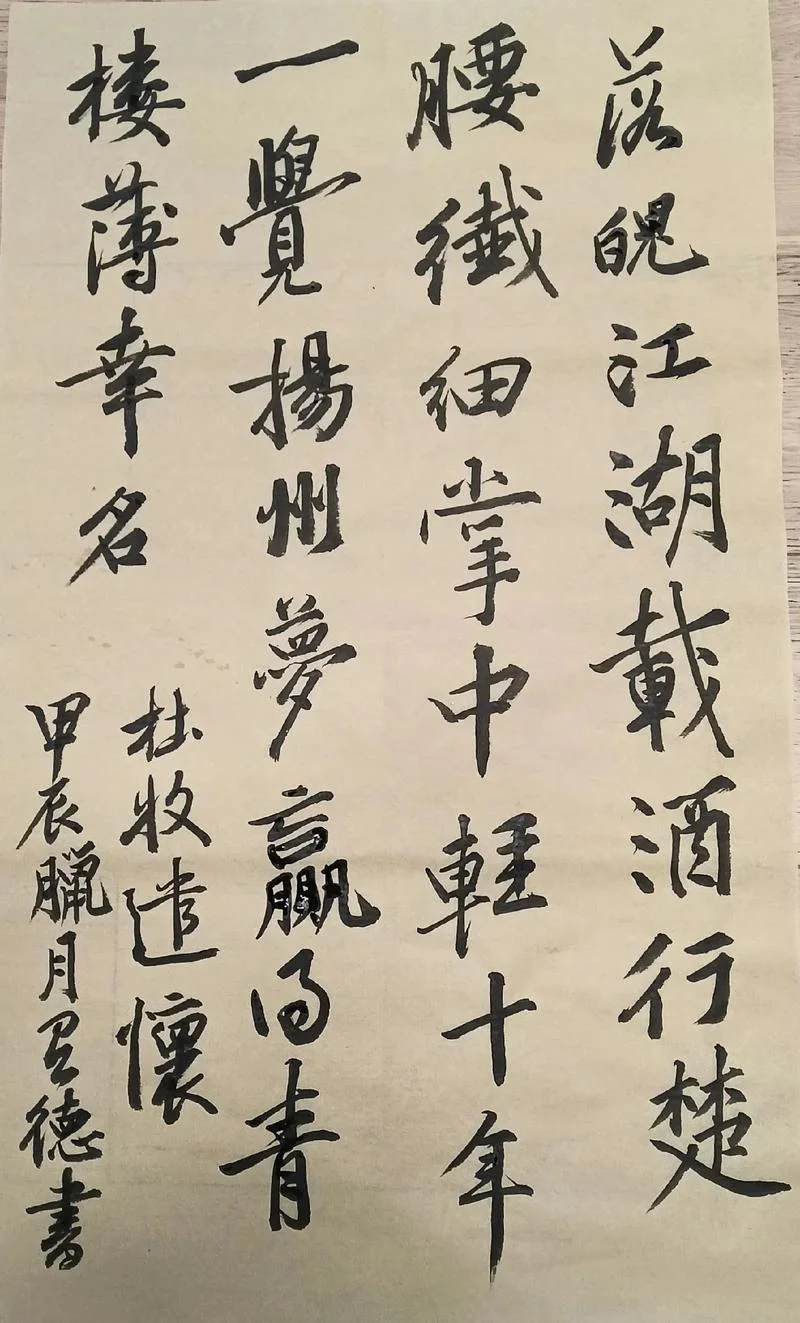 落魄江湖載酒行楚
腰纖細掌中輕十年
一覺揚州夢贏得青
楼薄幸名
杜牧遣懷
甲辰臘月 德書